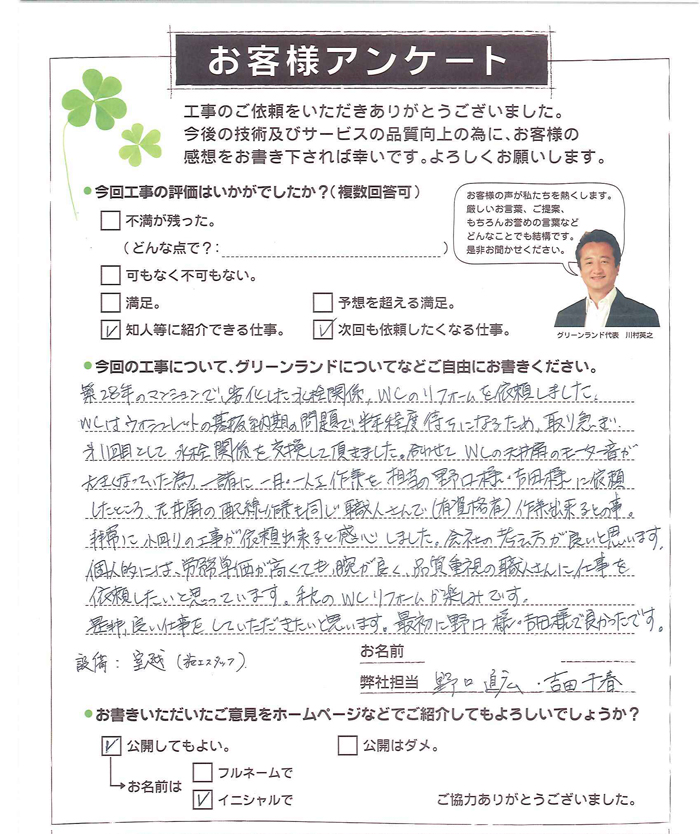 お客様アンケート
工事のご依頼をいただきありがとうございました。
今後の技術及びサービスの品質向上の為に、お客様の
感想をお書き下されば幸いです。よろしくお願いします。
●今回工事の評価はいかがでしたか？（複数回答可）
不満が残った。
（どんな点で？：）
可もなく不可もない。
満足。
予想を超える満足。
知人等に紹介できる仕事。
次回も依頼したくなる仕事。
お客様の声が私たちを熱くします。
厳しいお言葉、ご提案、
もちろんお誉めの言葉など
どんなことでも結構です。
是非お聞かせください。
グリーンランド代表 川村英之
●今回の工事について、グリーンランドについてなどご自由にお書きください。
築28年のマンションで、劣化した水栓関係、WCのリフォームを依頼しました。
WCはウォシュレットの基板納期の問題で、半年程度待ちになるため、取り急ぎ
第1回目として、水栓関係を交換して頂きました。合わせてWCの天井扇のモーター音が
大きくなっていた為、一緒に一日・一人を作業を担当の野口様・吉田様に依頼
したところ、天井扇の配線作業も同じ職人さんで（有資格者）作業出来るとの事。
非常に小回りの工事が依頼出来ると感心しました。会社の考え方が良いと思います。
個人的には、労務単価が高くても、腕が良く、品質重視の職人さんに仕事を
依頼したいと思っています。 WCリフォームが楽しみです。
是非、良い仕事をしていただきたいと思います。最初に野口様・吉田様で良かったです。
設備：室越（施工スタッフ）
お名前
弊社担当 野口 直広・吉田千春
●お書きいただいたご意見をホームページなどでご紹介してもよろしいでしょうか？
公開してもよい。
公開はダメ。
お名前は
フルネームで
イニシャルで
ご協力ありがとうございました。